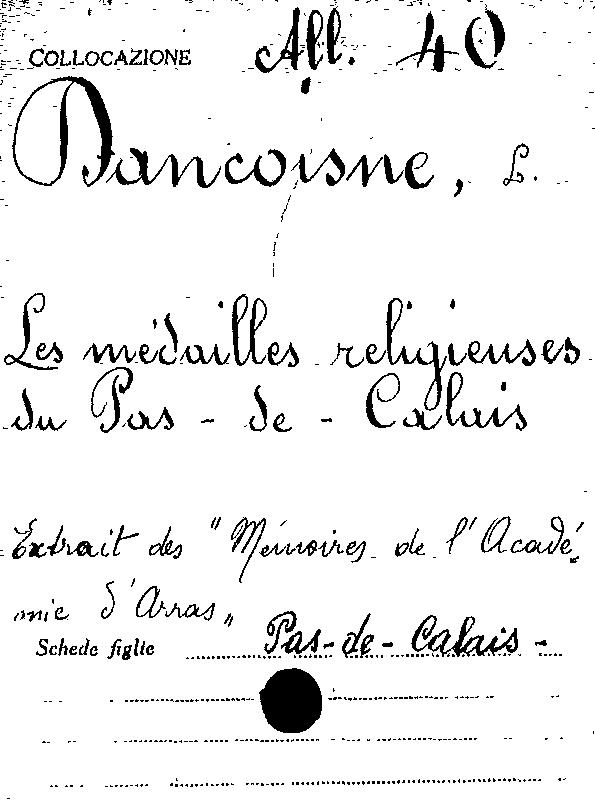 COLLOCAZIONE All. 40
Dancoisne, L.
Les médailles religieuses
du Pas-de-Calais
Extrait des "Mémoires de l'Acadé-
mie d'Arras"
Schede figlie Pas-de-Calais-